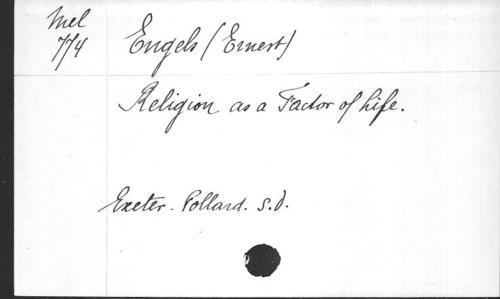 Mel
774
Engels (Ernest)
Religion as a Factor of Life.
Exeter - Pollard. s.d.